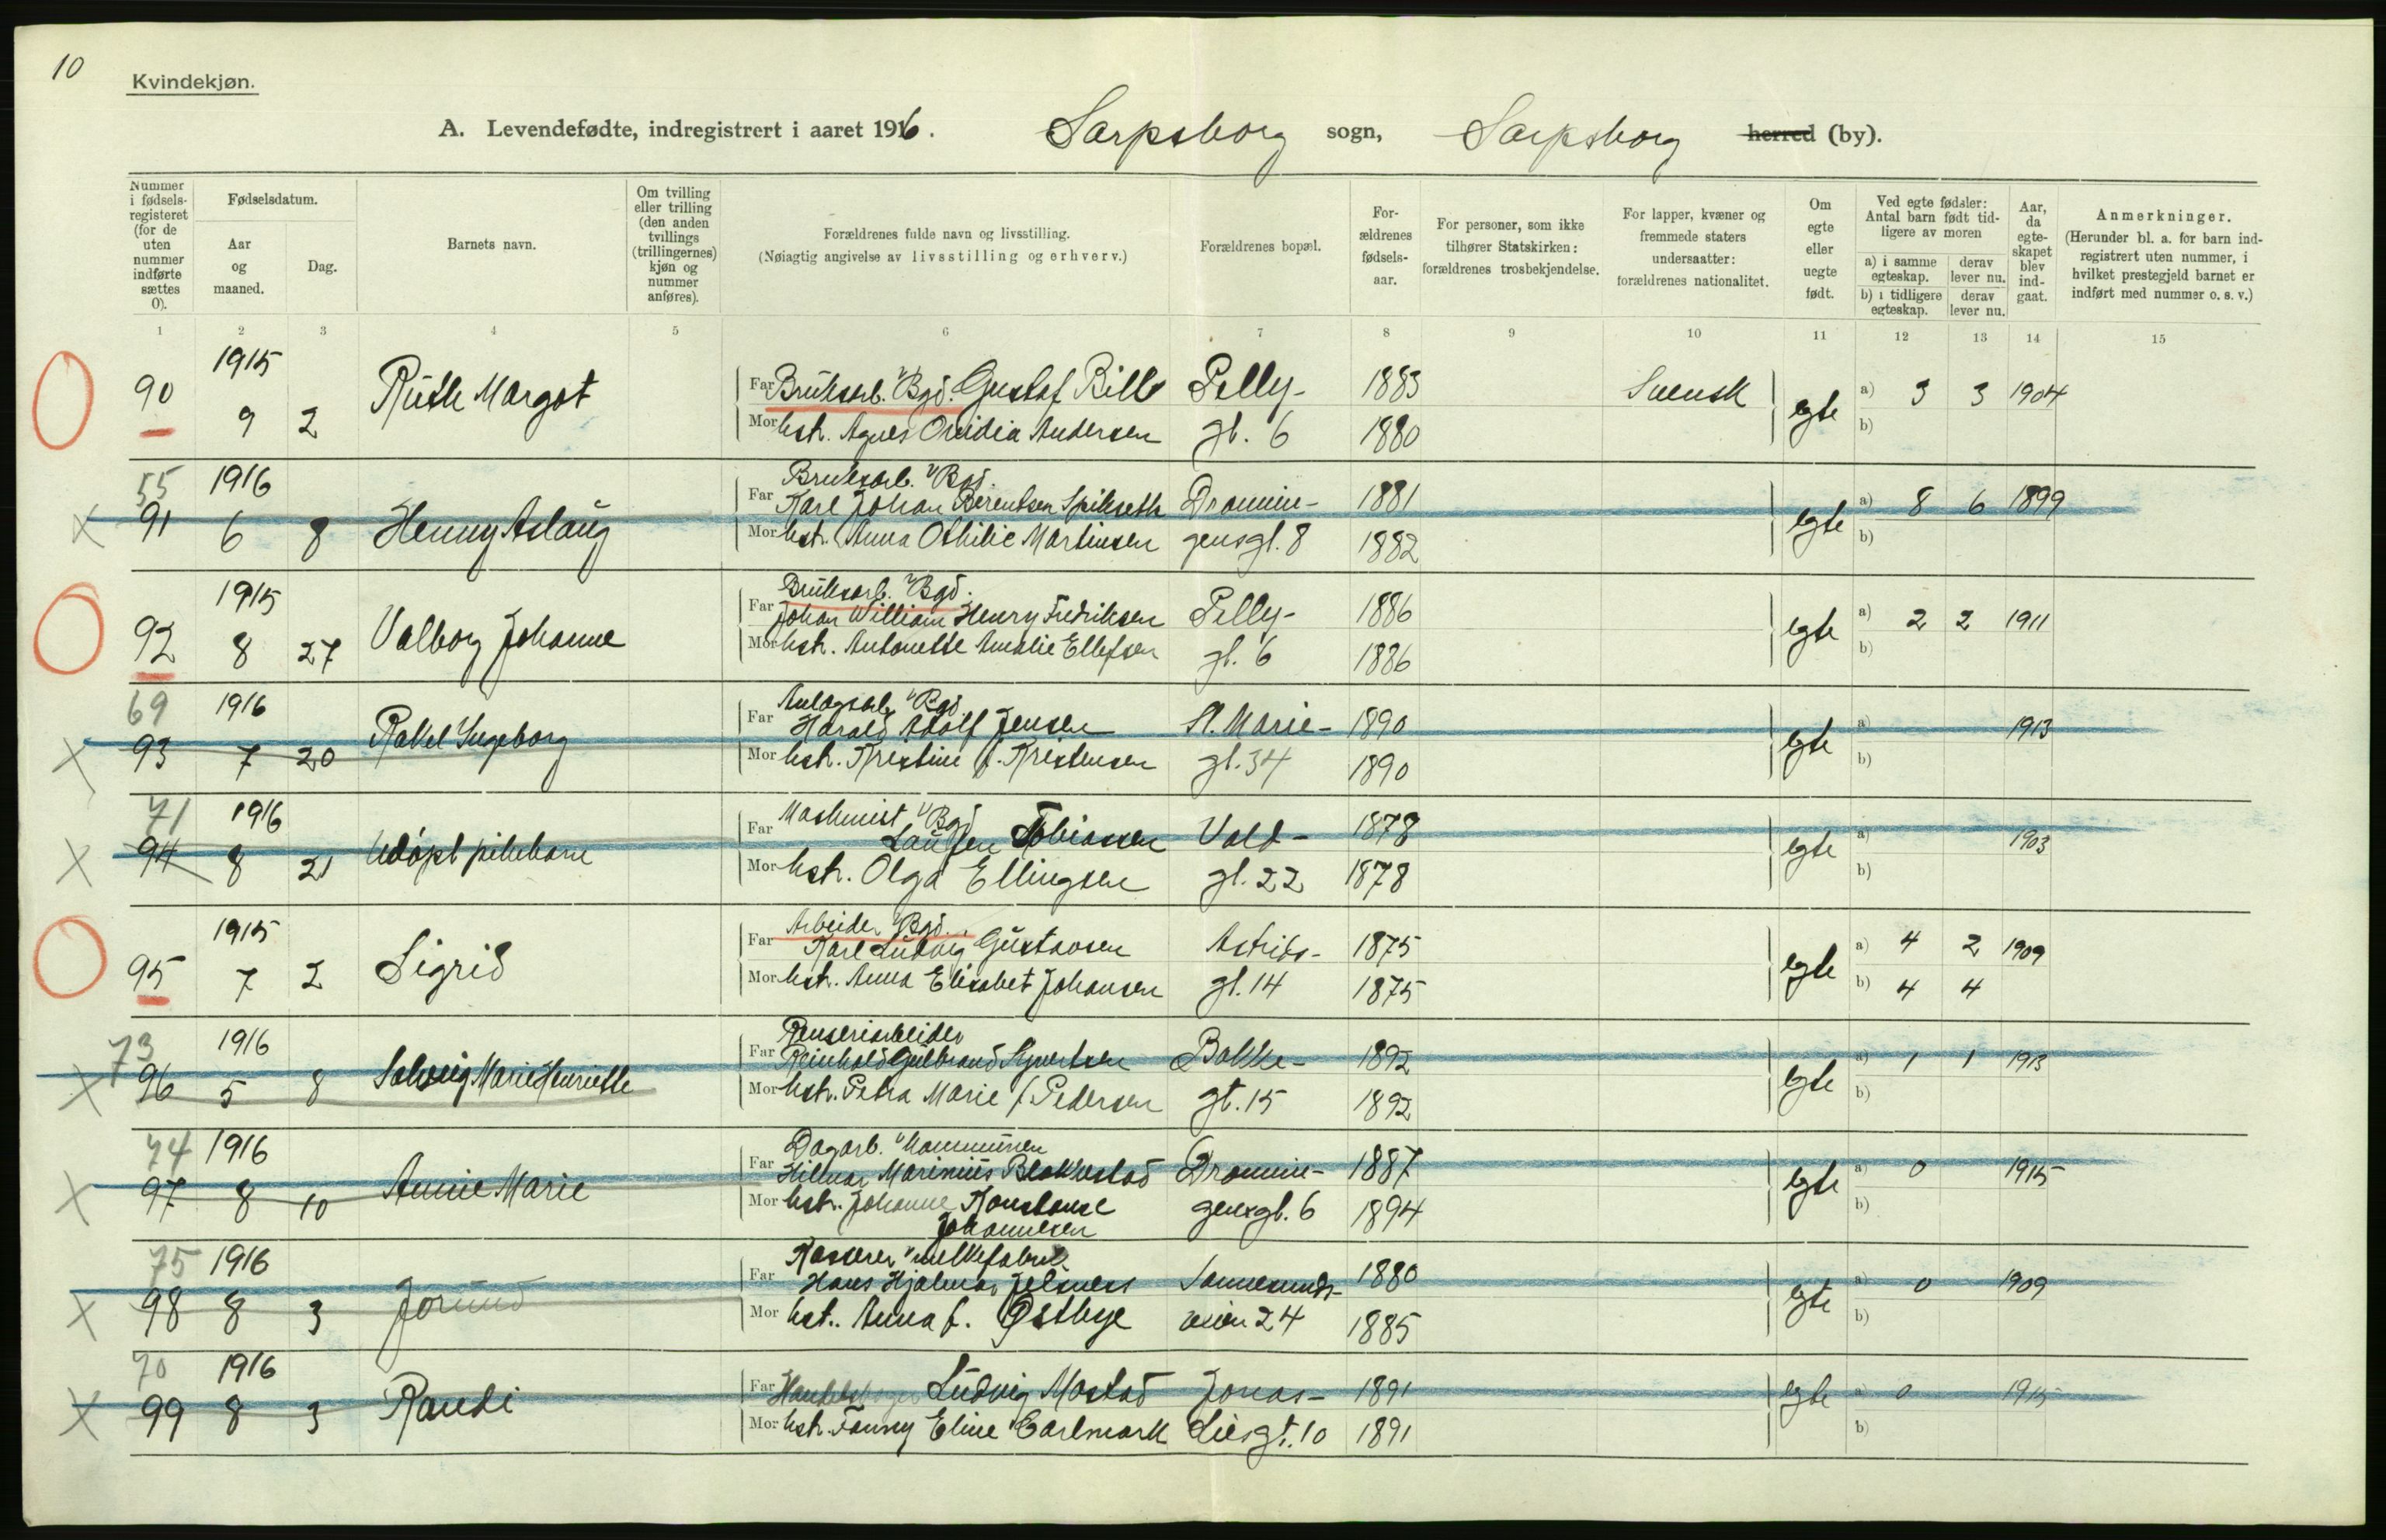 10
Kvindekjøn.
A. Levendefødte, indregistrert i aaret 1916. Sarpsborg sogn, Sarpsborg herred (by).
Nummer i fødsels-registeret (for de uten nummer indførte sættes 0).
Fødselsdatum.
Aar og maaned.
Dag.
Barnets navn.
Om tvilling eller trilling (den anden tvillings (trillingernes) kjøn og nummer anføres).
Forældrenes fulde navn og livsstilling.
(Nøiagtig angivelse av livsstilling og erhverv.)
Forældrenes bopæl.
For-ældrenes fødsels-aar.
For personer, som ikke tilhører Statskirken: forældrenes trosbekjendelse.
For lapper, kvæner og fremmede staters undersaatter: forældrenes nationalitet.
Om egte eller uegte født.
Ved egte fødsler: Antal barn født tid-ligere av moren
a) i samme egteskap. derav lever nu.
b) i tidligere egteskap. derav lever nu.
Aar, da egte-skapet blev ind-gaat.
Anmerkninger.
(Herunder bl. a. for barn ind-registrert uten nummer, i hvilket prestegjeld barnet er indført med nummer o. s. v.)
1 2 3 4 5 6 7 8 9 10 11 12 13 14 15
1915
90 9 2 Ruth Margot Far Bruksarb. v/Bgd. Gustaf Rill Pelly- 1883 Svensk egte a) 3 3 1904
Mor hstr. Agnes Ovidia Andersen gt. 6 1880 b)
55 1916 Bruksarb. v/Bgd.
91 6 8 Henny Aslaug Far Karl Johan Berentsen Spikseth Dronnin- 1881 egte a) 8 6 1899
Mor hstr. Anna Othilie Martinsen gensgt. 8 1882 b)
1915 Bruksarb. v/Bgd.
92 8 27 Valborg Johanne Far Johan William Henry Fredriksen Pelly- 1886 egte a) 2 2 1911
Mor hstr. Antonette Amalie Ellefsen gt. 6 1886 b)
69 1916 Anlægsarb. v/Bgd.
93 7 20 Rakel Ingeborg Far Harald Adolf Jensen St. Marie- 1890 egte a) 1913
Mor hstr. Kristine f. Kristensen gt. 34 1890 b)
71 1916 Maskinist v/Bgd
94 8 21 Udøpt pikebarn Far Lauften Tobiassen Vold- 1878 egte a) 1903
Mor hstr. Olga Ellingsen gt. 22 1878 b)
1915 Arbeider v/Bgd.
95 7 2 Sigrid Far Karl Ludvig Gustavsen Astrids- 1875 egte a) 4 2 1909
Mor hstr. Anna Elisabet Johansen gt. 14 1875 b) 4 4
73 1916 Renseriarbeider
96 5 8 Solveig Marie Henriette Far Reinhold Gulbrand Syvertsen Bakke- 1892 egte a) 1 1 1913
Mor hstr. Petra Marie f. Pedersen gt. 15 1892 b)
74 1916 Dagarb. v/Kommunen
97 8 10 Annie Marie Far Hilmar Marinius Blakkestad Dronnin- 1887 egte a) 0 1915
Mor hstr. Johanne Konstanse gensgt. 6 1894 b)
Johannesen
75 1916 Kasserer v/melkefabrik
98 8 3 Jorund Far Hans Hjalmar Jelsness Sannesunds- 1880 egte a) 0 1909
Mor hst. Anna f. Østbye veien 24 1885 b)
70 1916
99 8 3 Randi Far Ludvig Mostad Jonas- 1891 egte a) 0 1915
Mor hstr. Fanny Eline Carlmark Liesgt. 10 1891 b)